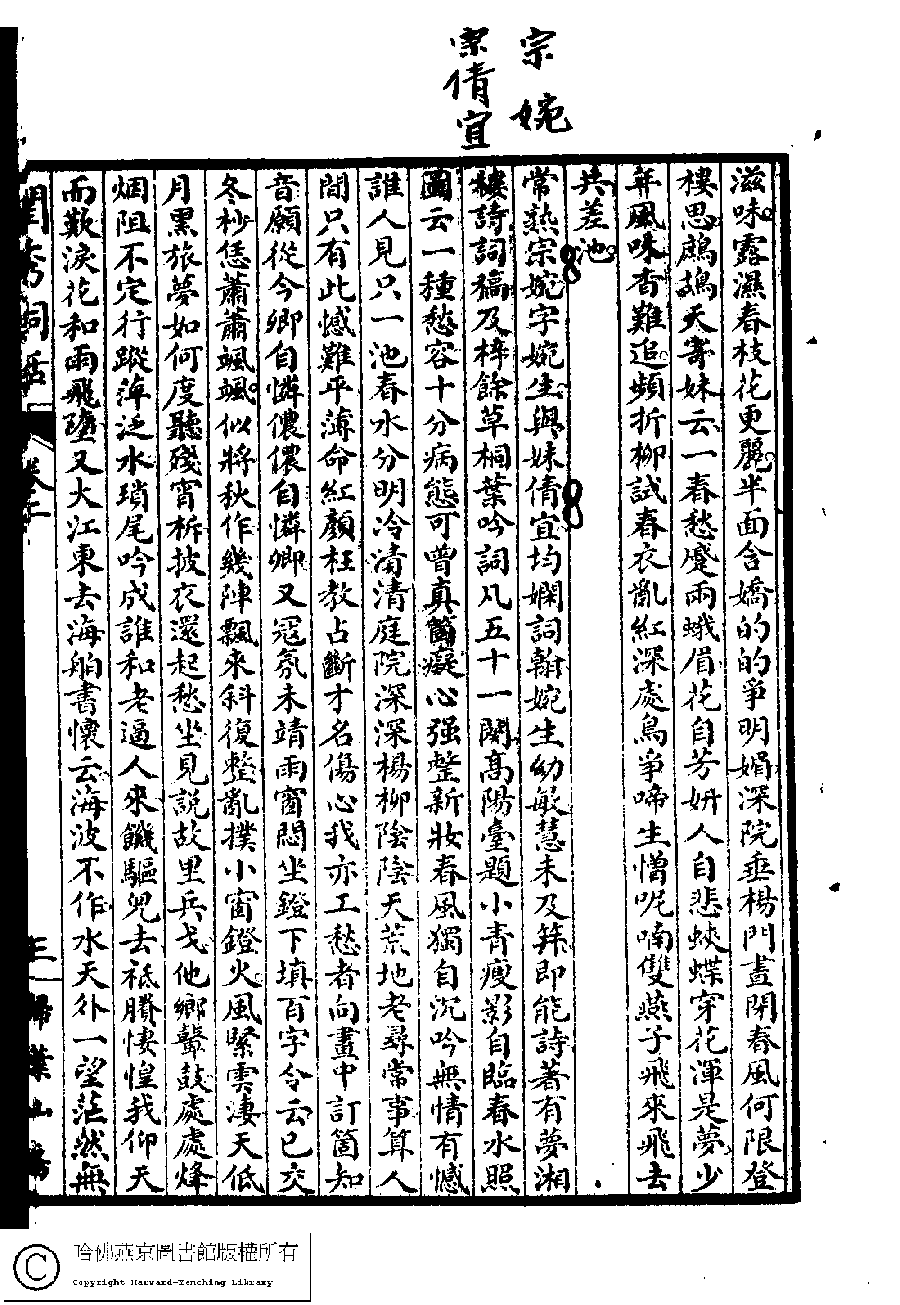 宗婉
宗倩宜
滋味露濕春枝花更麗半面含嬌的的爭明媚深院垂楊門晝閉春風何限登
樓思鷓鴣天寄妹云一春愁蹙兩蛾眉花自芳妍人自悲蛺蝶穿花渾是夢少
年風味杳難追頻折柳試春衣亂紅深處鳥爭啼生憎呢喃雙燕子飛來飛去
共差池
常熟宗婉字婉生與妹倩宜均嫻詞翰婉生幼敏慧未及笄即能詩著有夢湘
樓詩詞稿及梓餘草桐葉吟詞凡五十一闋高陽臺題小青瘦影自臨春水照
圖云一種愁容十分病態可曾真箇癡心强整新妝春風獨自沉吟無情有憾
誰人見只一池春水分明冷清清庭院深深楊柳陰陰天荒地老尋常事算人
間只有此憾難平薄命紅顏枉教占斷才名傷心我亦工愁者向畫中訂箇知
音願從今卿自憐儂儂自憐卿又寇氛未靖雨窗悶坐鐙下填百字令云已交
冬杪恁蕭蕭颯颯似將秋作幾陣飄來斜復整亂撲小窗鐙火風緊雲淒天低
月黑旅夢如何度聽殘宵柝披衣還起愁坐見說故里兵戈他鄉鼙鼓處處烽
烟阻不定行蹤萍泛水瑣尾吟成誰和老逼人來饑驅兒去祗賸悽惶我仰天
而歎淚花和雨飛墮又大江東去海舶書懷云海波不作水天外一望茫然無
閨秀詞話
卷三
三
掃葉山房
哈佛燕京圖書館版權所有
Copyright Harvard-Yenching Library